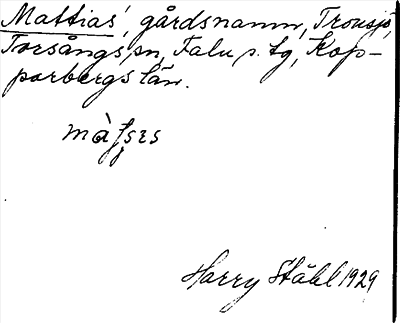 Mattias', gårdsnamn, Tronsjö,
Torsångs sn, Falu s. tg, Kop-
parbergs län.
Harry Ståhl 1929